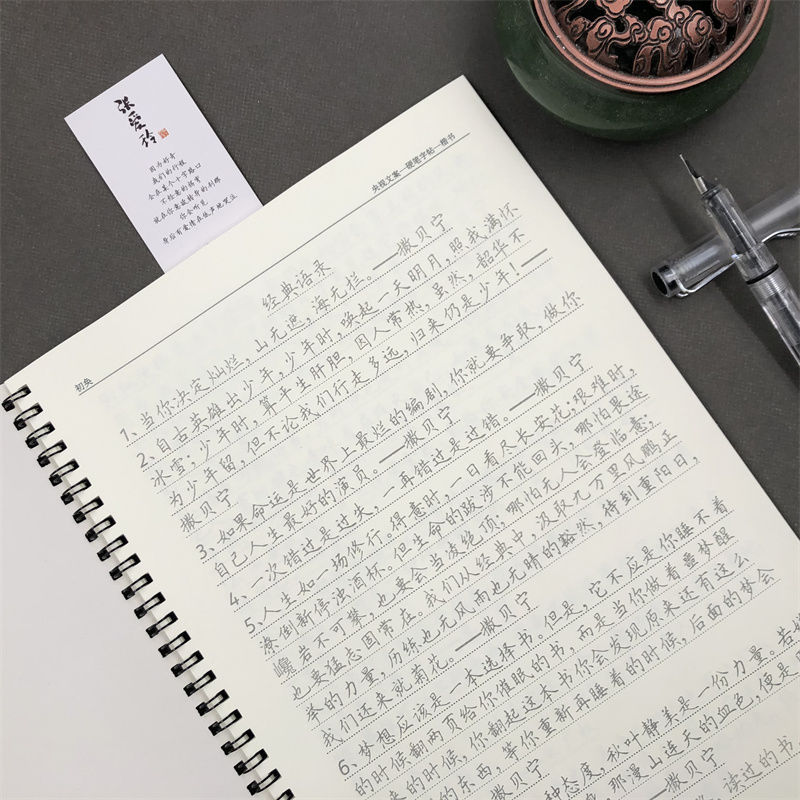 张爱玲
因为好奇
我们的行程
会在某个十字路口
不经意的拐弯
就在你意欲转身的刹那
你会听见
身后有爱情在低声地哭泣
央视文案—硬笔字帖—楷书
初奂
经典语录
1、当你决定灿烂，山无遮，海无拦。——撒贝宁
2、自古英雄出少年，少年时，唤起一天明月，照我满怀
冰雪；少年时，算平生肝胆，因人常热，虽然，韶华不
为少年留，但不论我们行走多远，归来仍是少年！——
撒贝宁
3、如果命运是世界上最烂的编剧，你就要争取，做你
自己人生最好的演员。——撒贝宁
4、一次错过是过失，一再错过是过错。——撒贝宁
5、人生如一场修行。得意时，一日看尽长安花；艰难时，
潦倒新停浊酒杯。但生命的跋涉不能回头，哪怕畏途
巉岩不可攀，也要会当凌绝顶；哪怕无人会登临意；
也要猛志固常在。我们从经典中，汲取九万里风鹏正
举的力量，历练也无风雨也无晴的豁然，待到重阳日，
我们还来就菊花。——撒贝宁
6、梦想应该是一本选择书。但是，它不应是你睡不着
的时候翻两页给你催眠的书，而是当你做着噩梦醒
来的时候，你翻起这本书你会发现原来还有这么
的东西，等你重新再睡着的时候，后面的梦会
——撒贝宁
种态度，秋叶静美是一份力量。若
那漫山连天的血色，便是
——撒贝宁
读过的书